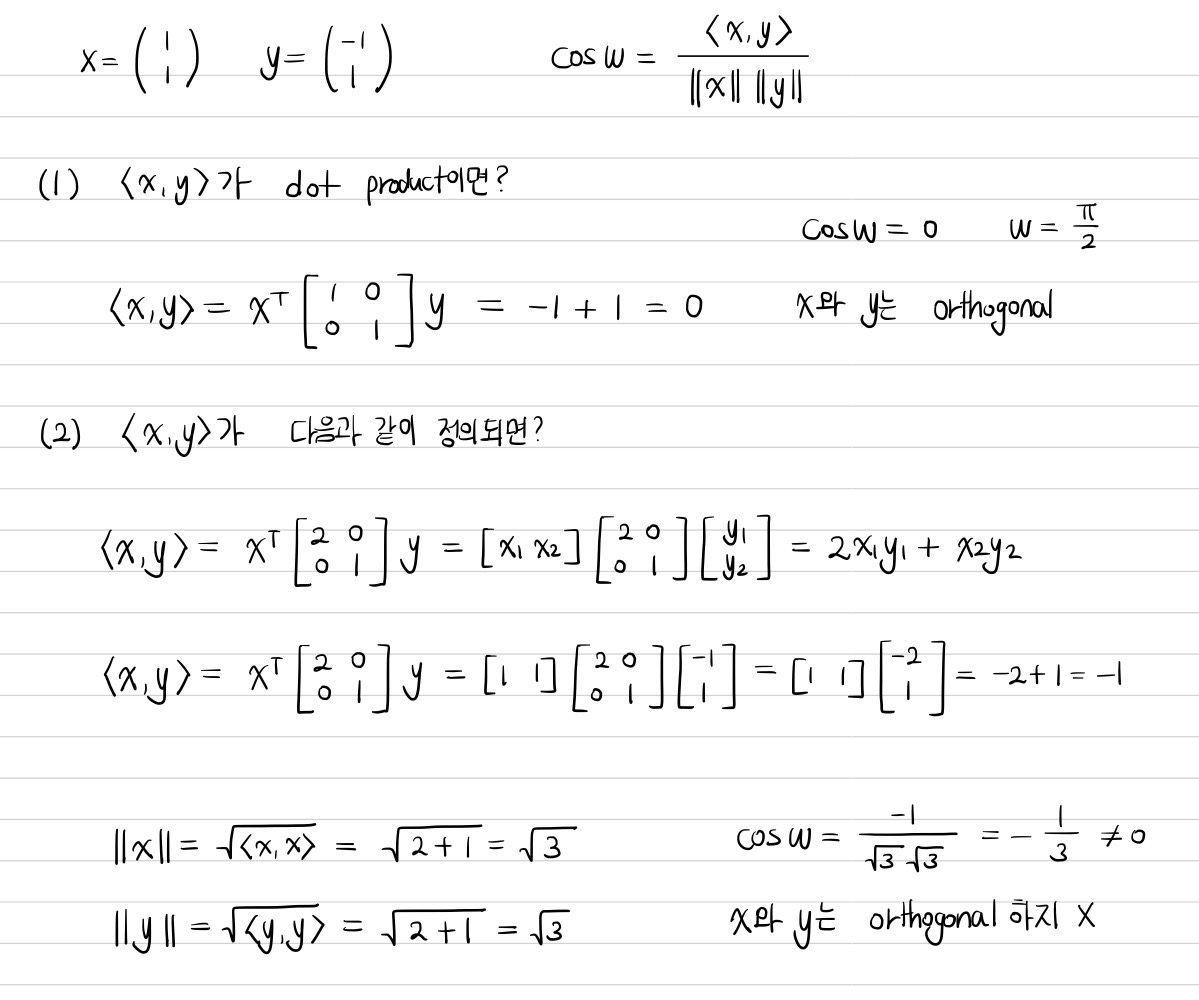 x = (1 1) y = (-1 1) cos w = <x, y> / ||x|| ||y||
(1) <x, y>가 dot product이면?
cos w = 0 w = π/2
<x, y> = xᵀ [1 0 0 1] y = -1 + 1 = 0 x와 y는 orthogonal
(2) <x, y>가 다음과 같이 정의되면?
<x, y> = xᵀ [2 0 0 1] y = [x₁ x₂] [2 0 0 1] [y₁ y₂] = 2x₁y₁ + x₂y₂
<x, y> = xᵀ [2 0 0 1] y = [1 1] [2 0 0 1] [-1 1] = [1 1] [-2 1] = -2+1 = -1
||x|| = √<x, x> = √2+1 = √3 cos w = -1 / √3 √3 = - 1/3 ≠ 0
||y|| = √<y, y> = √2+1 = √3 x와 y는 orthogonal 하지 X